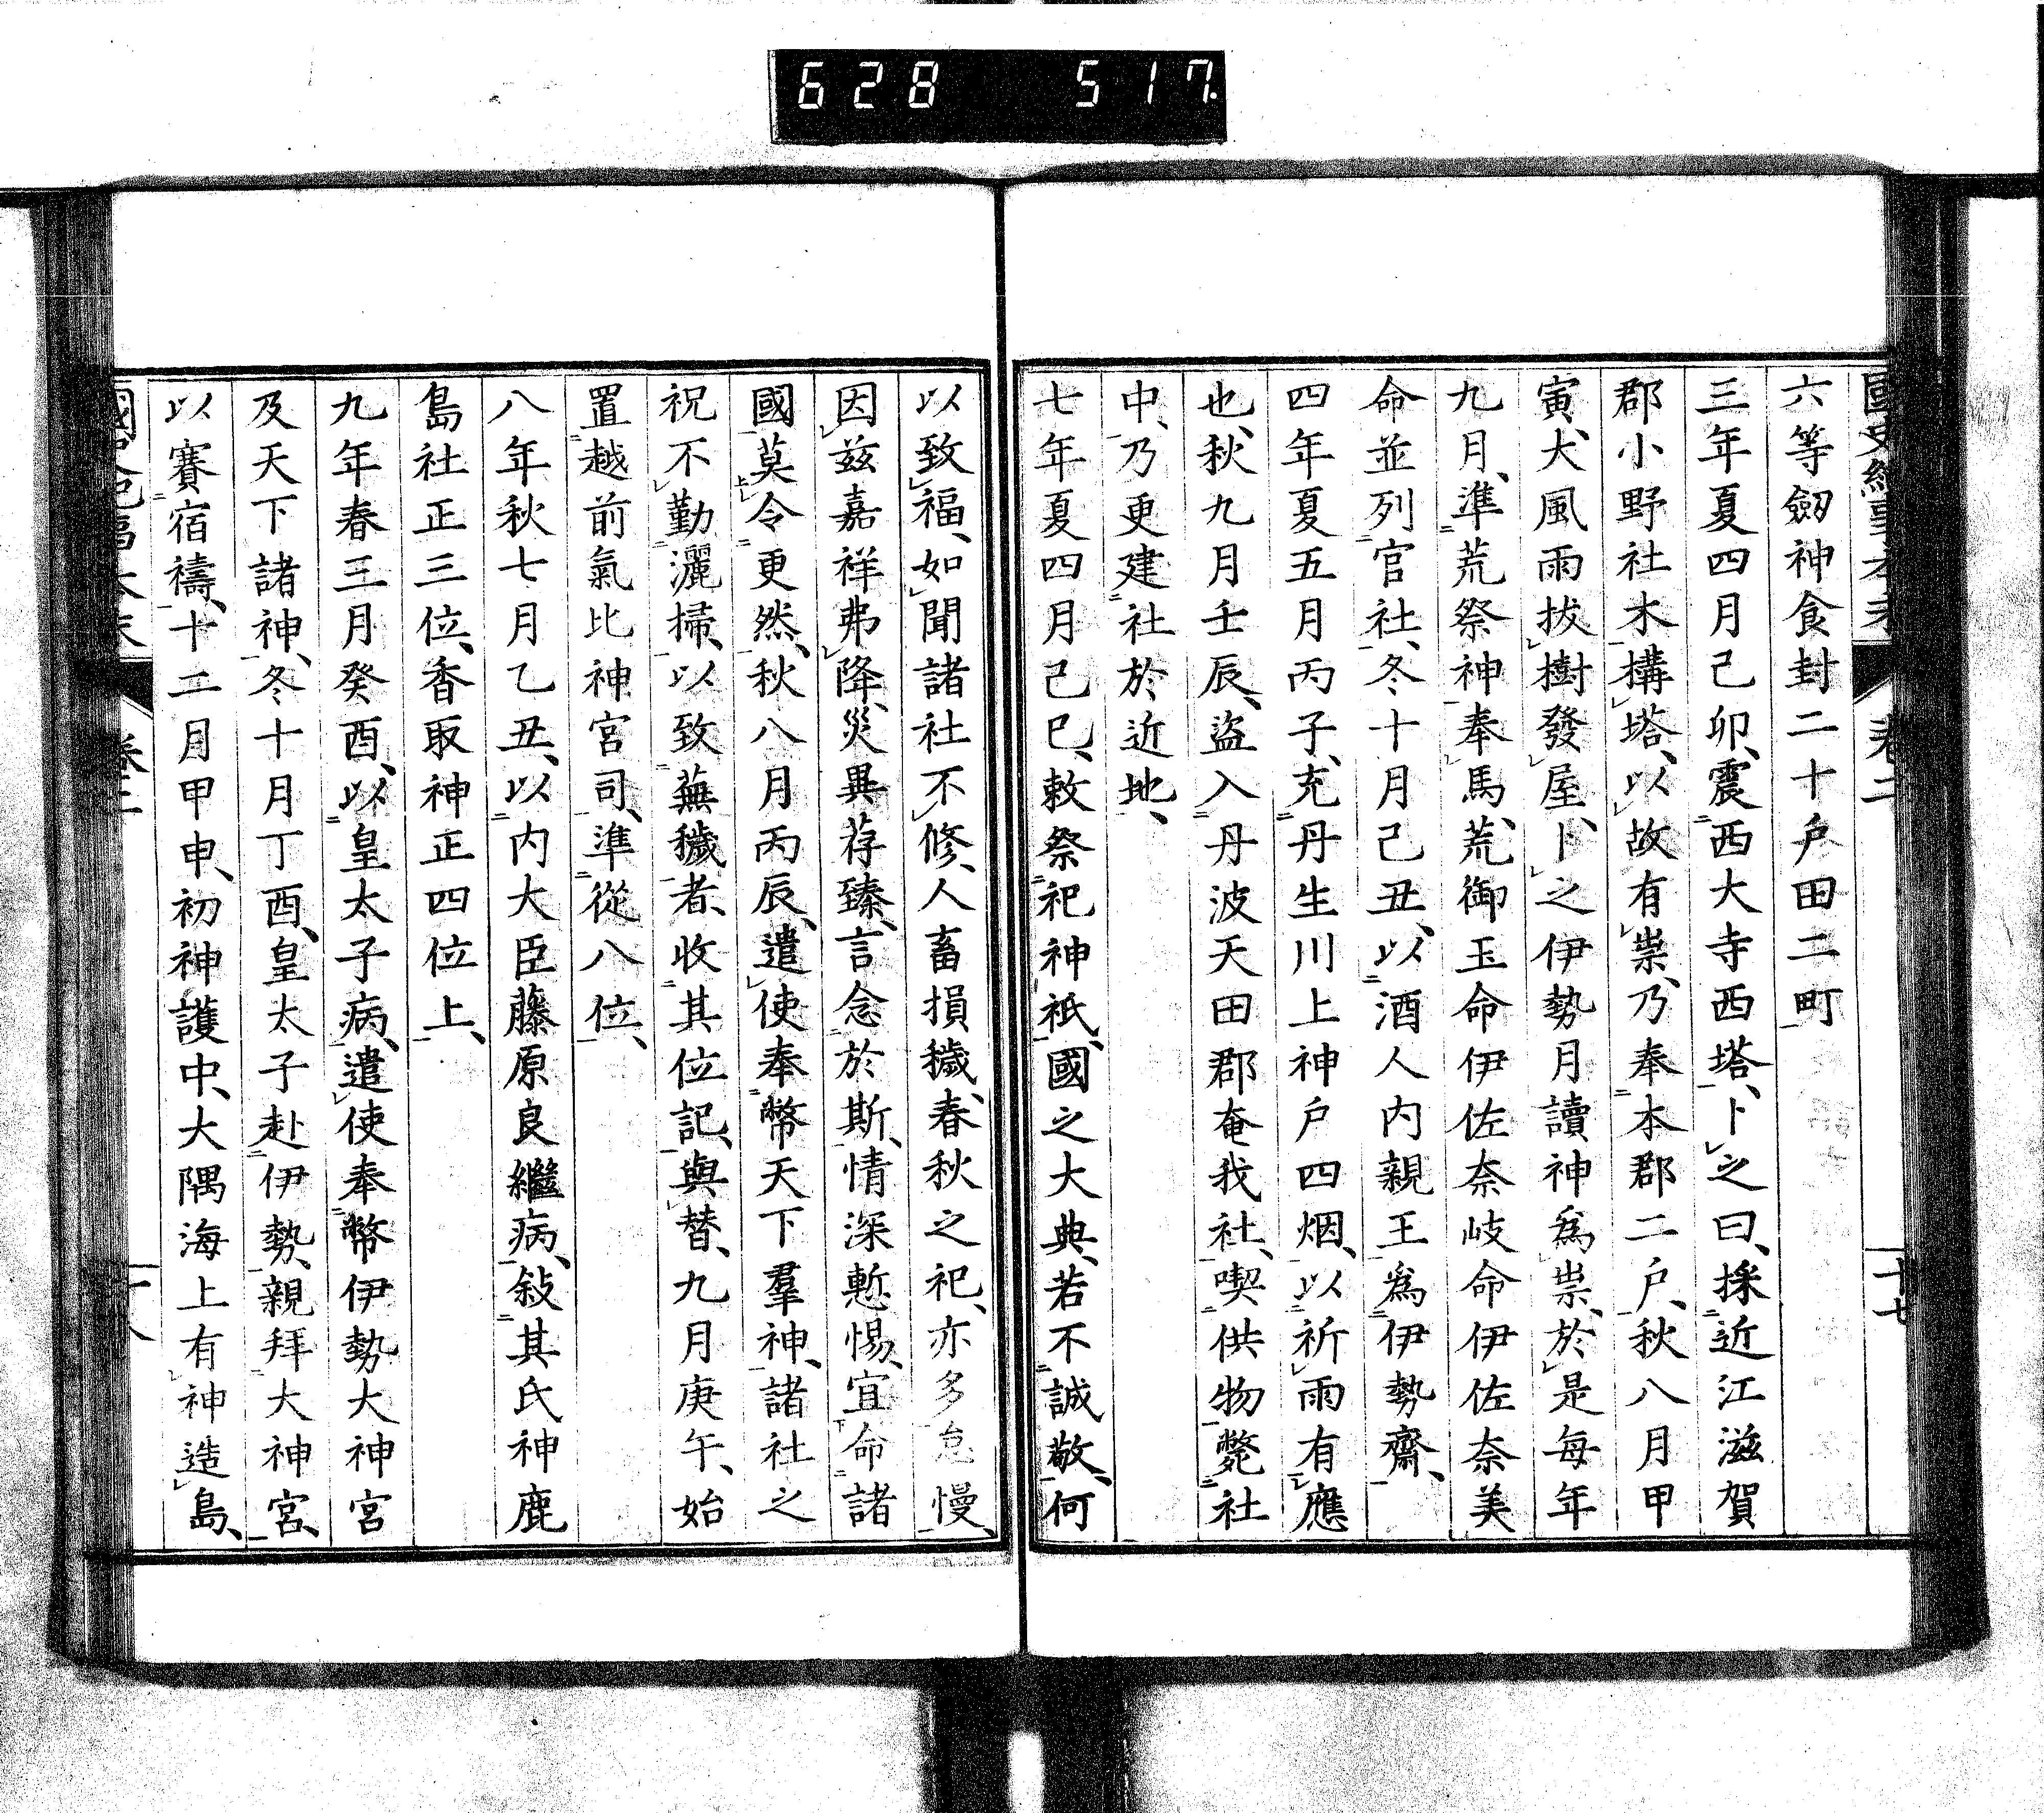 628 517
六等劒神食封二十戶田二町
三年夏四月己卯、震西大寺西塔、卜之曰、採近江滋賀
郡小野社木構塔、以故有祟、乃奉本郡二戶、秋八月甲
寅、大風雨拔樹發屋、卜之伊勢月讀神爲祟、於是每年
九月、準荒祭神奉馬、荒御玉命伊佐奈岐命伊佐奈美
命並列官社、冬十月己丑、以酒人內親王爲伊勢齋、
四年夏五月丙子、充丹生川上神戶四烟、以祈雨有應
也、秋九月壬辰、盜入丹波天田郡奄我社、喫供物斃社
中、乃更建社於近地、
七年夏四月己巳、敕祭祀神祇、國之大典、若不誠敬、何
以致福、如聞諸社不修、人畜損穢、春秋之祀、亦多怠慢、
因茲嘉祥弗降、災異荐臻、言念於斯、情深慙惕、宜命諸
國莫令更然、秋八月丙辰、遣使奉幣天下羣神、諸社之
祝不勤灑掃、以致蕪穢者、收其位記、與替、九月庚午、始
置越前氣比神宮司、準從八位、
八年秋七月乙丑、以內大臣藤原良繼病、敍其氏神鹿
島社正三位、香取神正四位上、
九年春三月癸酉、以皇太子病、遣使奉幣伊勢大神宮
及天下諸神、冬十月丁酉、皇太子赴伊勢、親拜大神宮、
以賽宿禱、十二月甲申、初神護中、大隅海上有神造島、